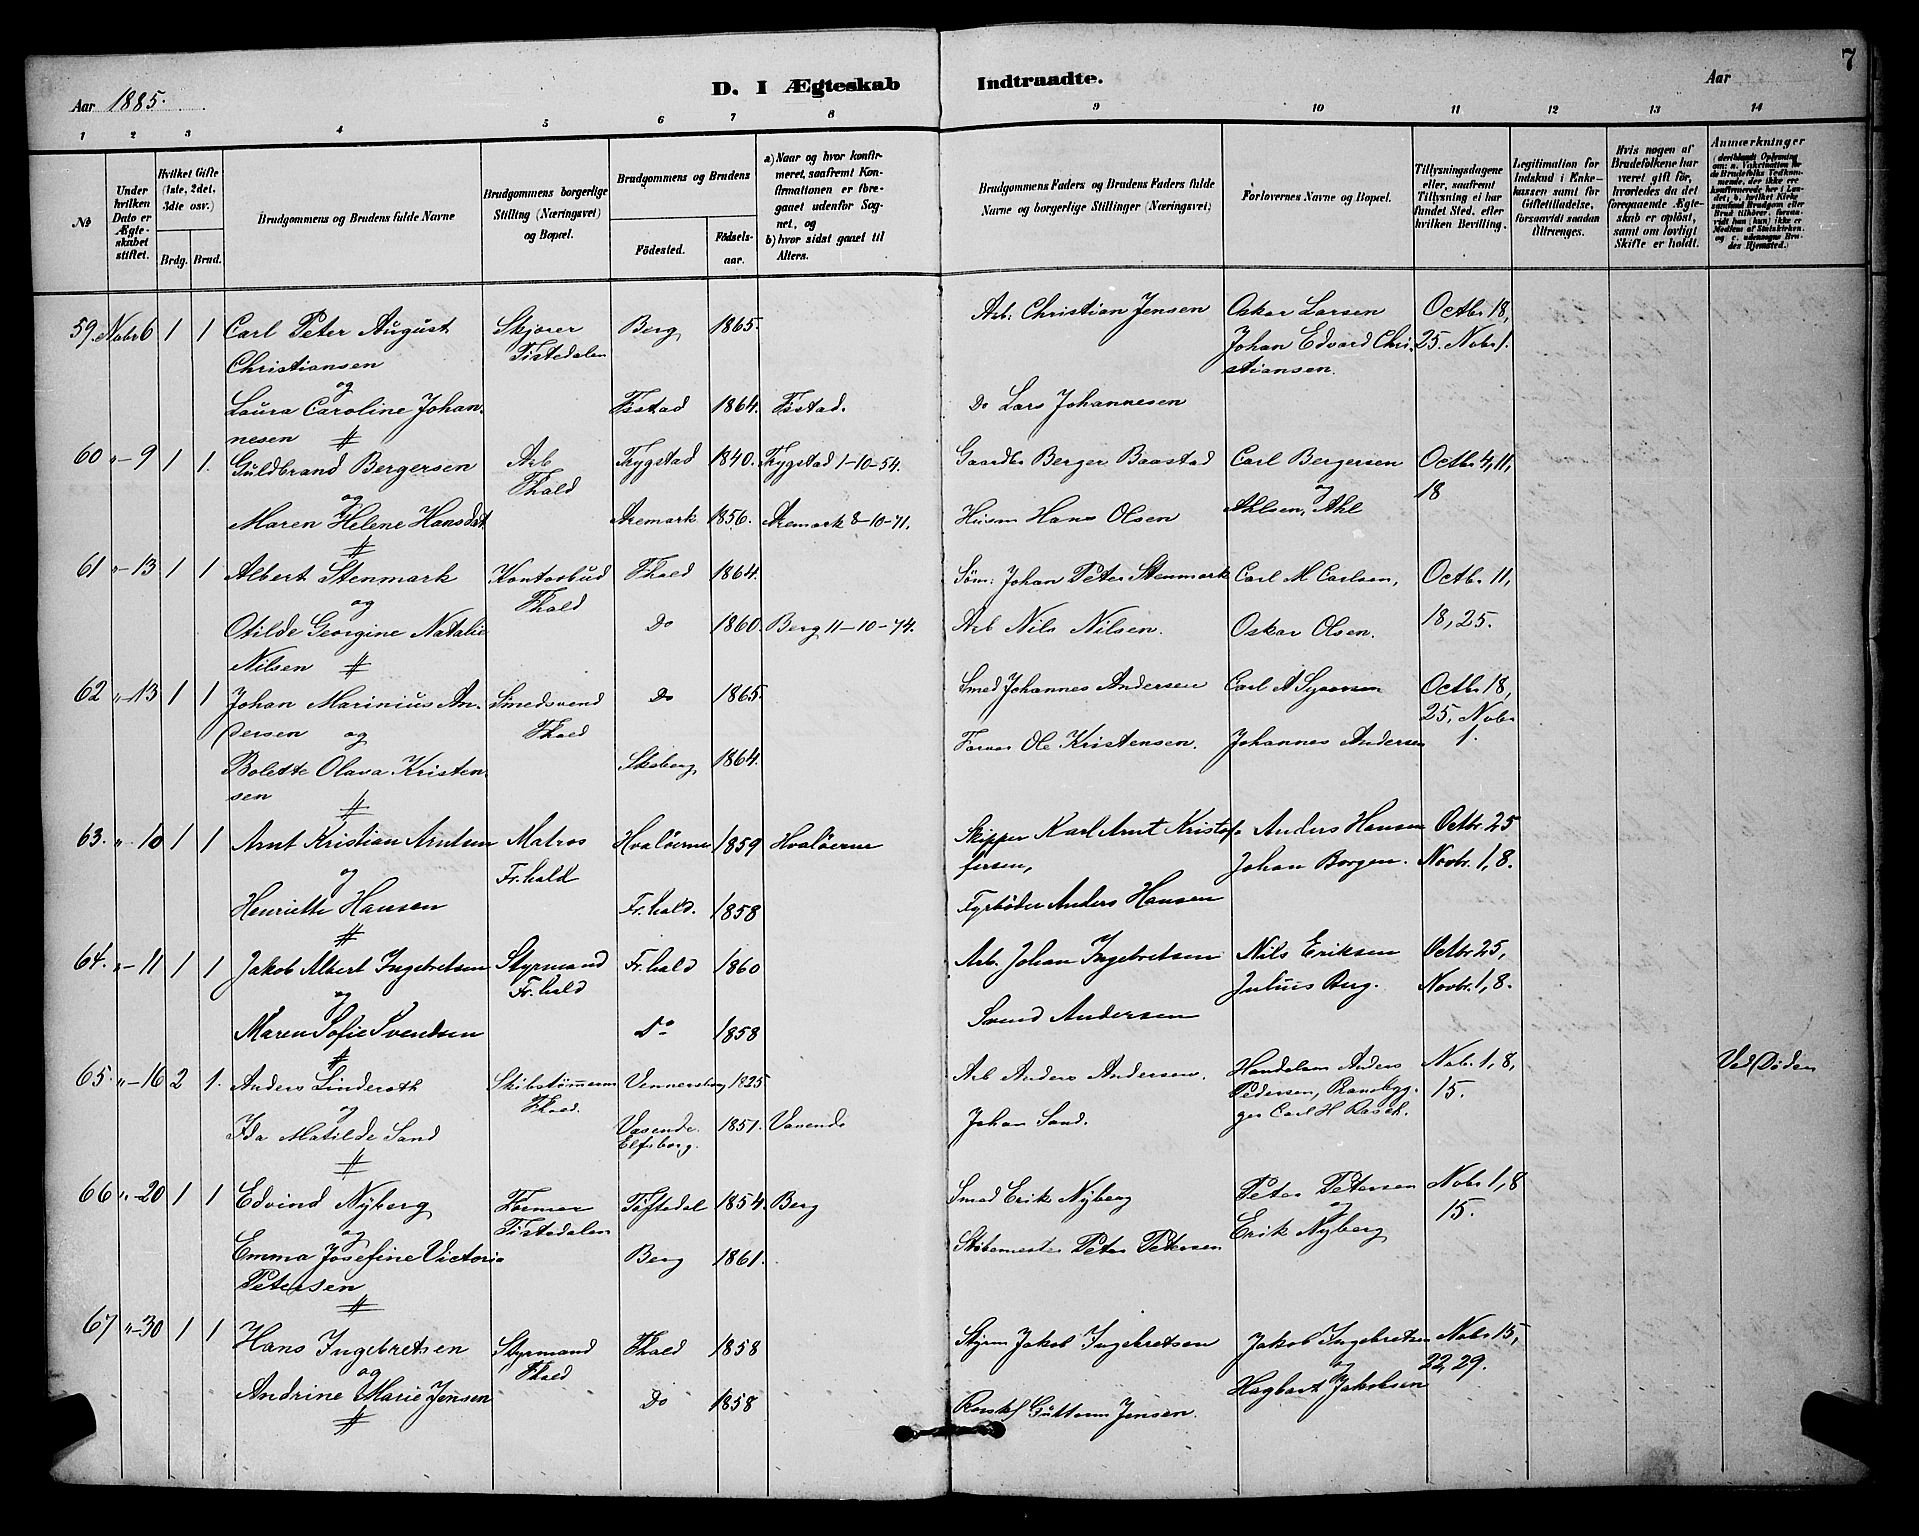 7
Aar 1885.
D. I Ægteskab Indtraadte.
Aar
1 2 3 4 5 6 7 8 9 10 11 12 13 14
№
Under hvilken Dato er Ægteskabet stiftet.
Hvilket Gifte (1ste, 2det, 3die osv.)
Brdg. Brud.
Brudgommens og Brudens fulde Navne
Brudgommens borgerlige Stilling (Næringsvei) og Bopæl.
Brudgommens og Brudens
Fødested. Fødselsaar.
a) Naar og hvor konfirmeret, saafremt Konfirmationen er foregaaet udenfor Sognet, og
b) hvor sidst gaaet til Alters.
Brudgommens Faders og Brudens Faders fulde Navne og borgerlige Stillinger (Næringsvei)
Forlovernes Navne og Bopæl.
Tillysningsdagene eller, saafremt Tillysning ei har fundet Sted, efter hvilken Bevilling.
Legitimation for Indskud i Enkekassen samt for Giftetilladelse, forsaavidt saadan tiltrænges.
Hvis nogen af Brudefolkene har været gift før, hvorledes da det foregaaende Ægteskab er opløst, samt om lovligt Skifte er holdt.
Anmærkninger
59. Nobr 6 1 1 Carl Peter August Skjærer Berg 1865. Arb. Christian Jensen Oskar Larsen Octbr 18,
Christiansen Tistedalen Johan Edvard Chri- 25. Nobr 1.
og stiansen.
Laura Caroline Johan- Idstad 1864. Idstad. Do Lars Johannesen
nesen #
60 "-9 1 1. Guldbrand Bergersen Arb Trygstad 1840. Trygstad 1-10-54. Gaardbr Berger Baastad Carl Bergersen Octbr 4, 11,
og Fhald og 18
Maren Helene Hansdat Aremark 1856. Aremark 8-10-71. Husm Hans Olsen Ahlsen, Ahl
#
61 "-13 1 1 Albert Stenmark Kontorbud Fhald 1864. Søm: Johan Peter Stenmark Carl M Carlsen, Octbr 11,
og Fhald
Otilde Georgine Natalie Do 1860. Berg 11-10-74. Arb Nils Nilsen. Oskar Olsen. 18, 25.
Nilsen #
62 "-13 1 1 Johan Marinius An- Smedsvend Do 1865. Smed Johannes Andersen Carl A Octbr 18,
dersen og Fhald 25, Nobr
Bolette Olava Kristen- Skeberg 1864. Farver Ole Kristensen. Johannes Andersen 1.
sen #
63. "-10 1 1 Arnt Kristian Arntsen Matros Hvaløerne 1859 Hvaløerne Skipper Karl Arnt Kristof- Anders Hansen Octbr. 25
og Fr.hald fersen, Johan Borgen. Novbr. 1, 8.
Henriette Hansen Fr. hald. 1858 Fyrbøder Anders Hansen
#
64. "-11 1 1 Jakob Albert Ingebretsen Styrmand Fr. hald 1860 Arb. Johan Ingebretsen Nils Eriksen Octbr. 25,
og Fr. hald Julius Berg. Novbr. 1, 8.
Maren Sofie Svendsen Do 1858 Svend Andersen
#
65. "-16 2 1. Anders Linderoth Skibstømmerm Vennersborg 1825 Arb Anders Andersen. Handelsm Anders Nobr. 1, 8, Ved Døden
og Fhald. Pedersen, 15.
Ida Matilde Sand Vasende 1851. Vasende Johan Sand. ger Carl H Rasch.
# Elfsborg.
66 "-20 1 1 Edvind Nyberg Former Tistedal 1854. Berg Smed Erik Nyberg Peter Petersen Nobr 1, 8
og Tistedalen og 15.
Emma Josefine Victoria Berg 1861. Støbemester Peter Petersen Erik Nyberg
Petersen
#
67 "-30 1 1 Hans Ingebretsen Styrmand Fhald 1858 Styrm Jakob Ingebretsen Jakob Ingebretsen Nobr 15,
og Fhald og 22, 29.
Andrine Marie Jensen Do 1858 Guttorm Jensen. Hagbart Jakobsen
#